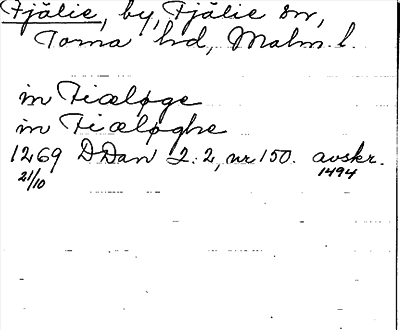 Fjälie, by, Fjälie sn,
Torna hd, Malm. l.
in Fiæløge
in Fiæløghe
1269 DDan 2:2, nr 150. avskr.
21/10 1494